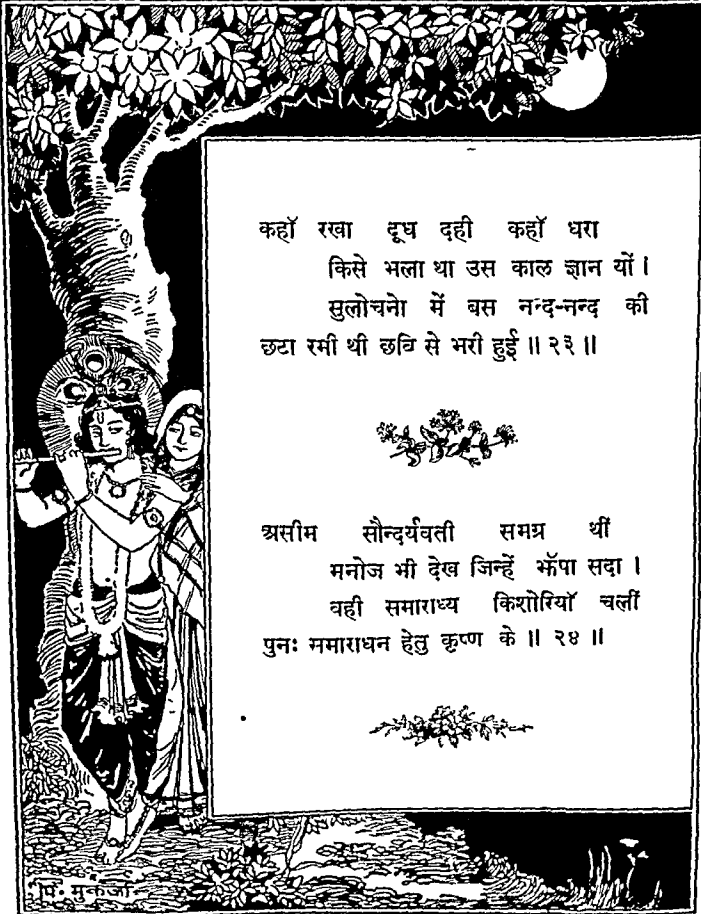 कहाॅ रखा दूध दही कहाॅ धरा
किसे भला था उस काल ज्ञान यों ।
सुलोचनेा में बस नन्द-नन्द की
छटा रमी थी छवि से भरी हुई ॥ २३ ॥
असीम सौन्दर्यवती समग्र थीं
मनोज भी देख जिन्हें झॅंपा सदा ।
वही समाराध्य किशोरियाॅ चलीं
पुनः समाराधन हेतु कृष्ण के ॥ २४ ॥
पि. मुकर्जी